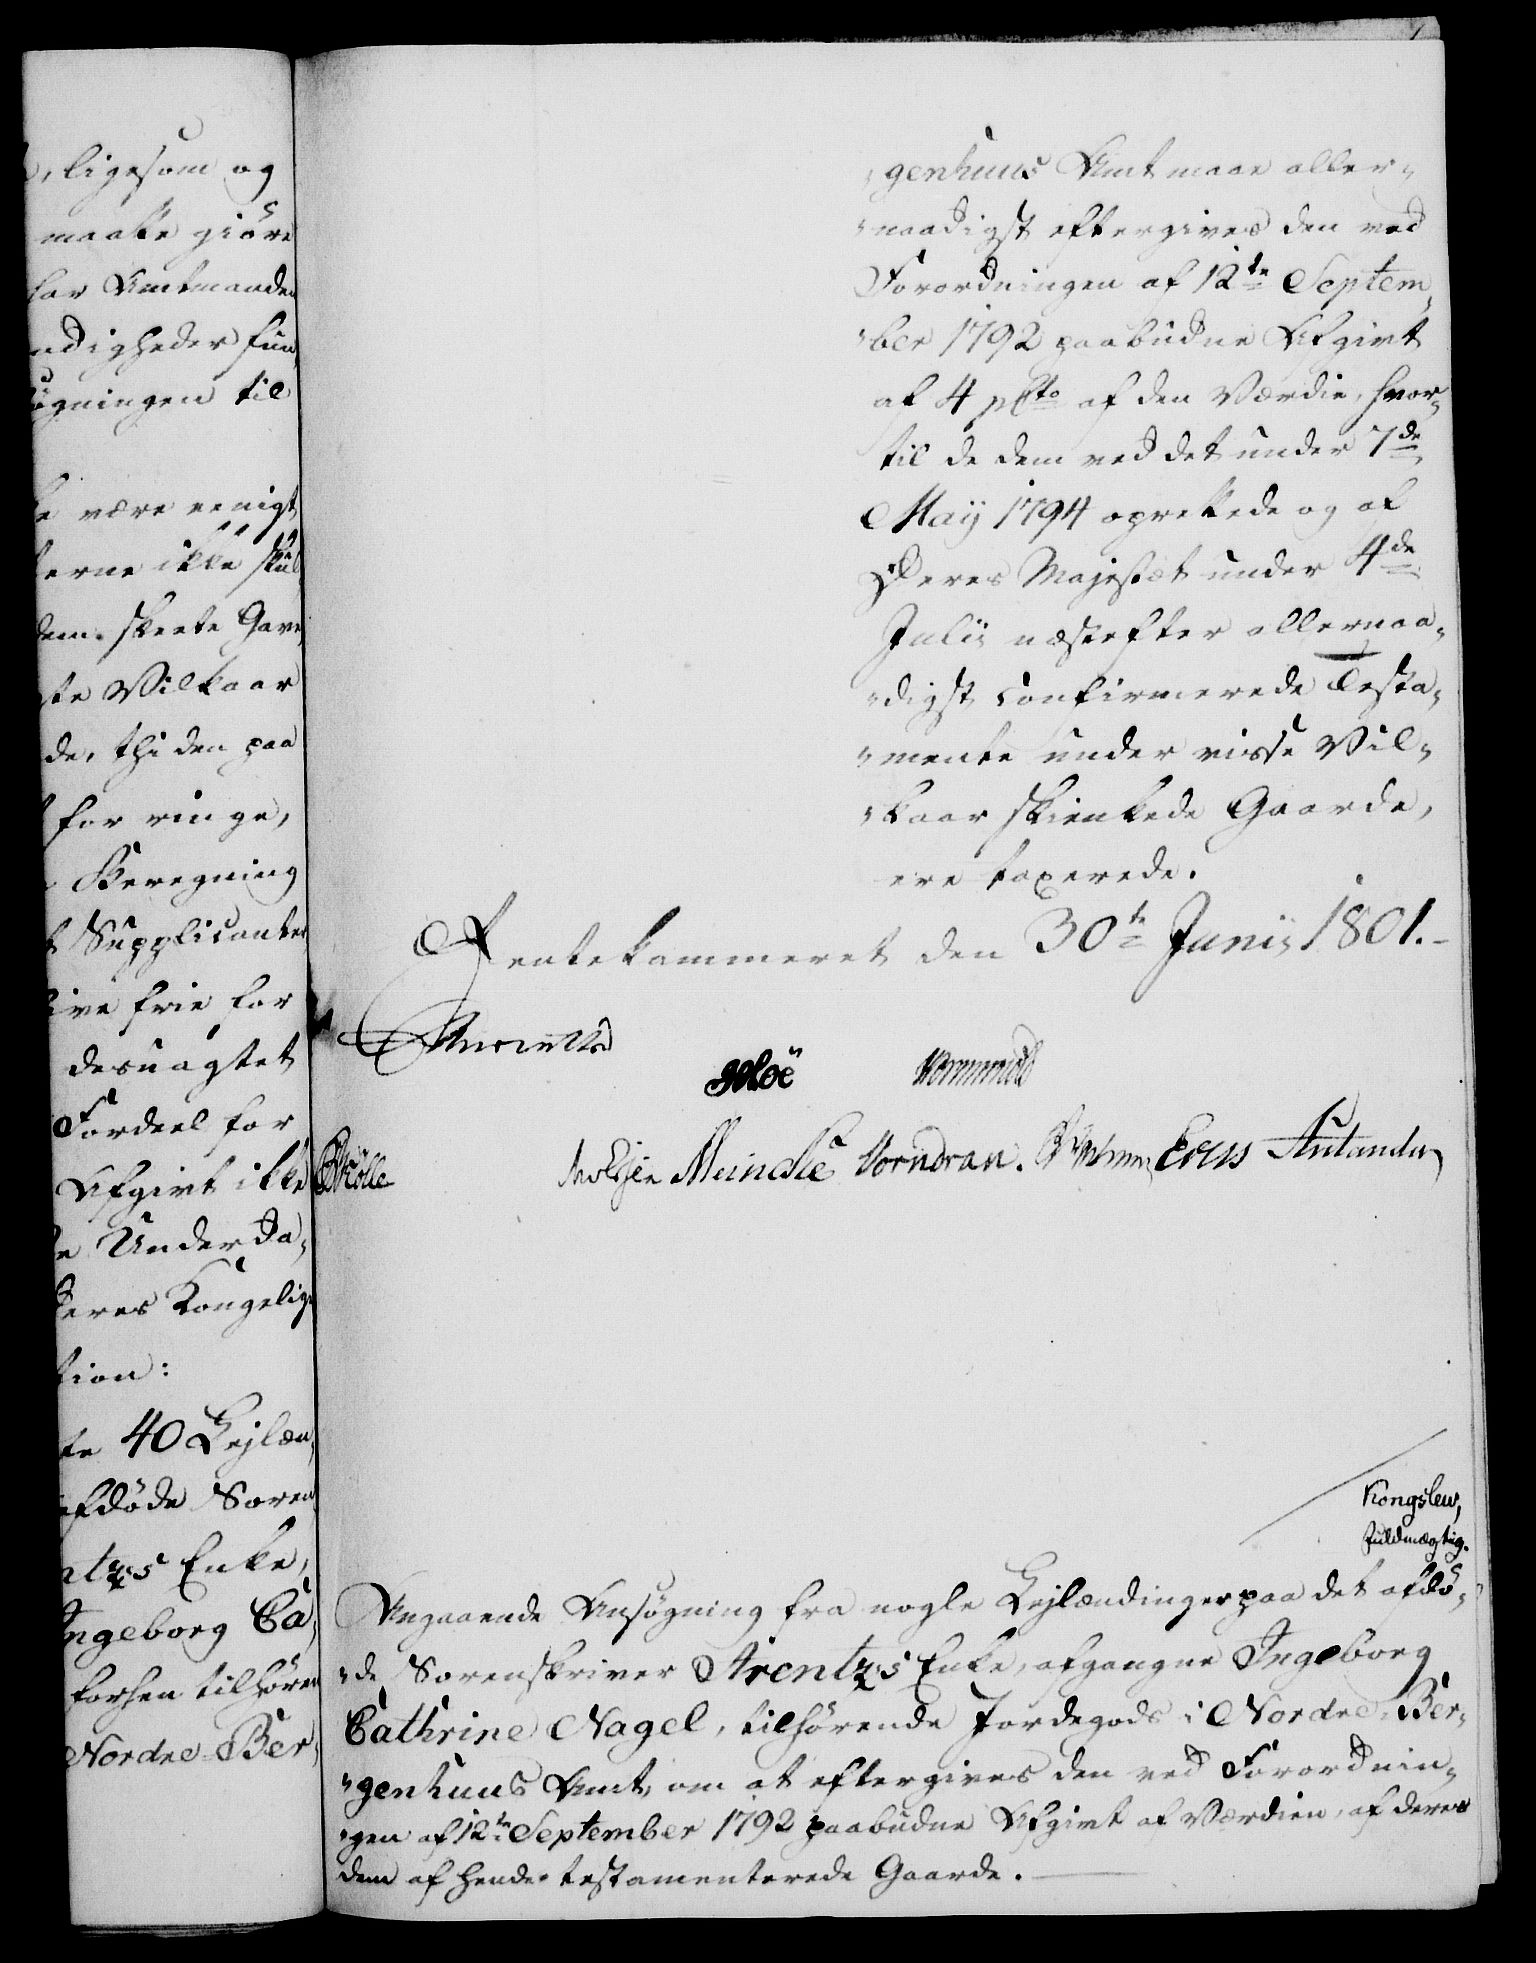 , ligesom og
maatte giöre
har Amtmanden
ndigheder fun
øgningen til
e være eenigt
terne ikke skul
dem skeete Gave
ste Vilkaar
de, thi den paa
for ringe,
Beregning
t Supplicanter
live frie for
desuagtet
Fordeel for
Afgivt ikke
e Underda-
Deres Kongelige
tion:
te 40 Lejlæn-
afdöde Soren
ntzes Enke,
Ingeborg Ca-
forhen tilhören
Nordre-Ber-
genhuus Amt maae aller-
naadigst eftergives den ved
Forordningen af 12te Septem-
ber 1792 paabudne Afgivt
af 4 pCto af den Værdie, hvor-
til de dem ved det under 7de
Maij 1794 oprettede og af
Deres Majestæt under 4de
Julii næstefter allernaa-
digst confirmerede Testa-
mente under visse Vil-
kaar skienkede Gaarde,
ere taxerede.
Rentekammeret den 30te Junii 1801.-
Meinche Vorndran. Erns Aulander
Kongslew,
Fuldmægtig.
Angaaende Ansøgning fra nogle Lejlændinger paa det afdö-
de Sorenskriver Arentzes Enke, afgangne Ingeborg
Cathrine Nagel, tilhørende Jordegods i Nordre-Ber-
genhuus Amt, om at eftergives den ved Forordnin-
gen af 12te September 1792 paabudne Afgivt af Værdien, af deres
dem af hende testamenterede Gaarde.